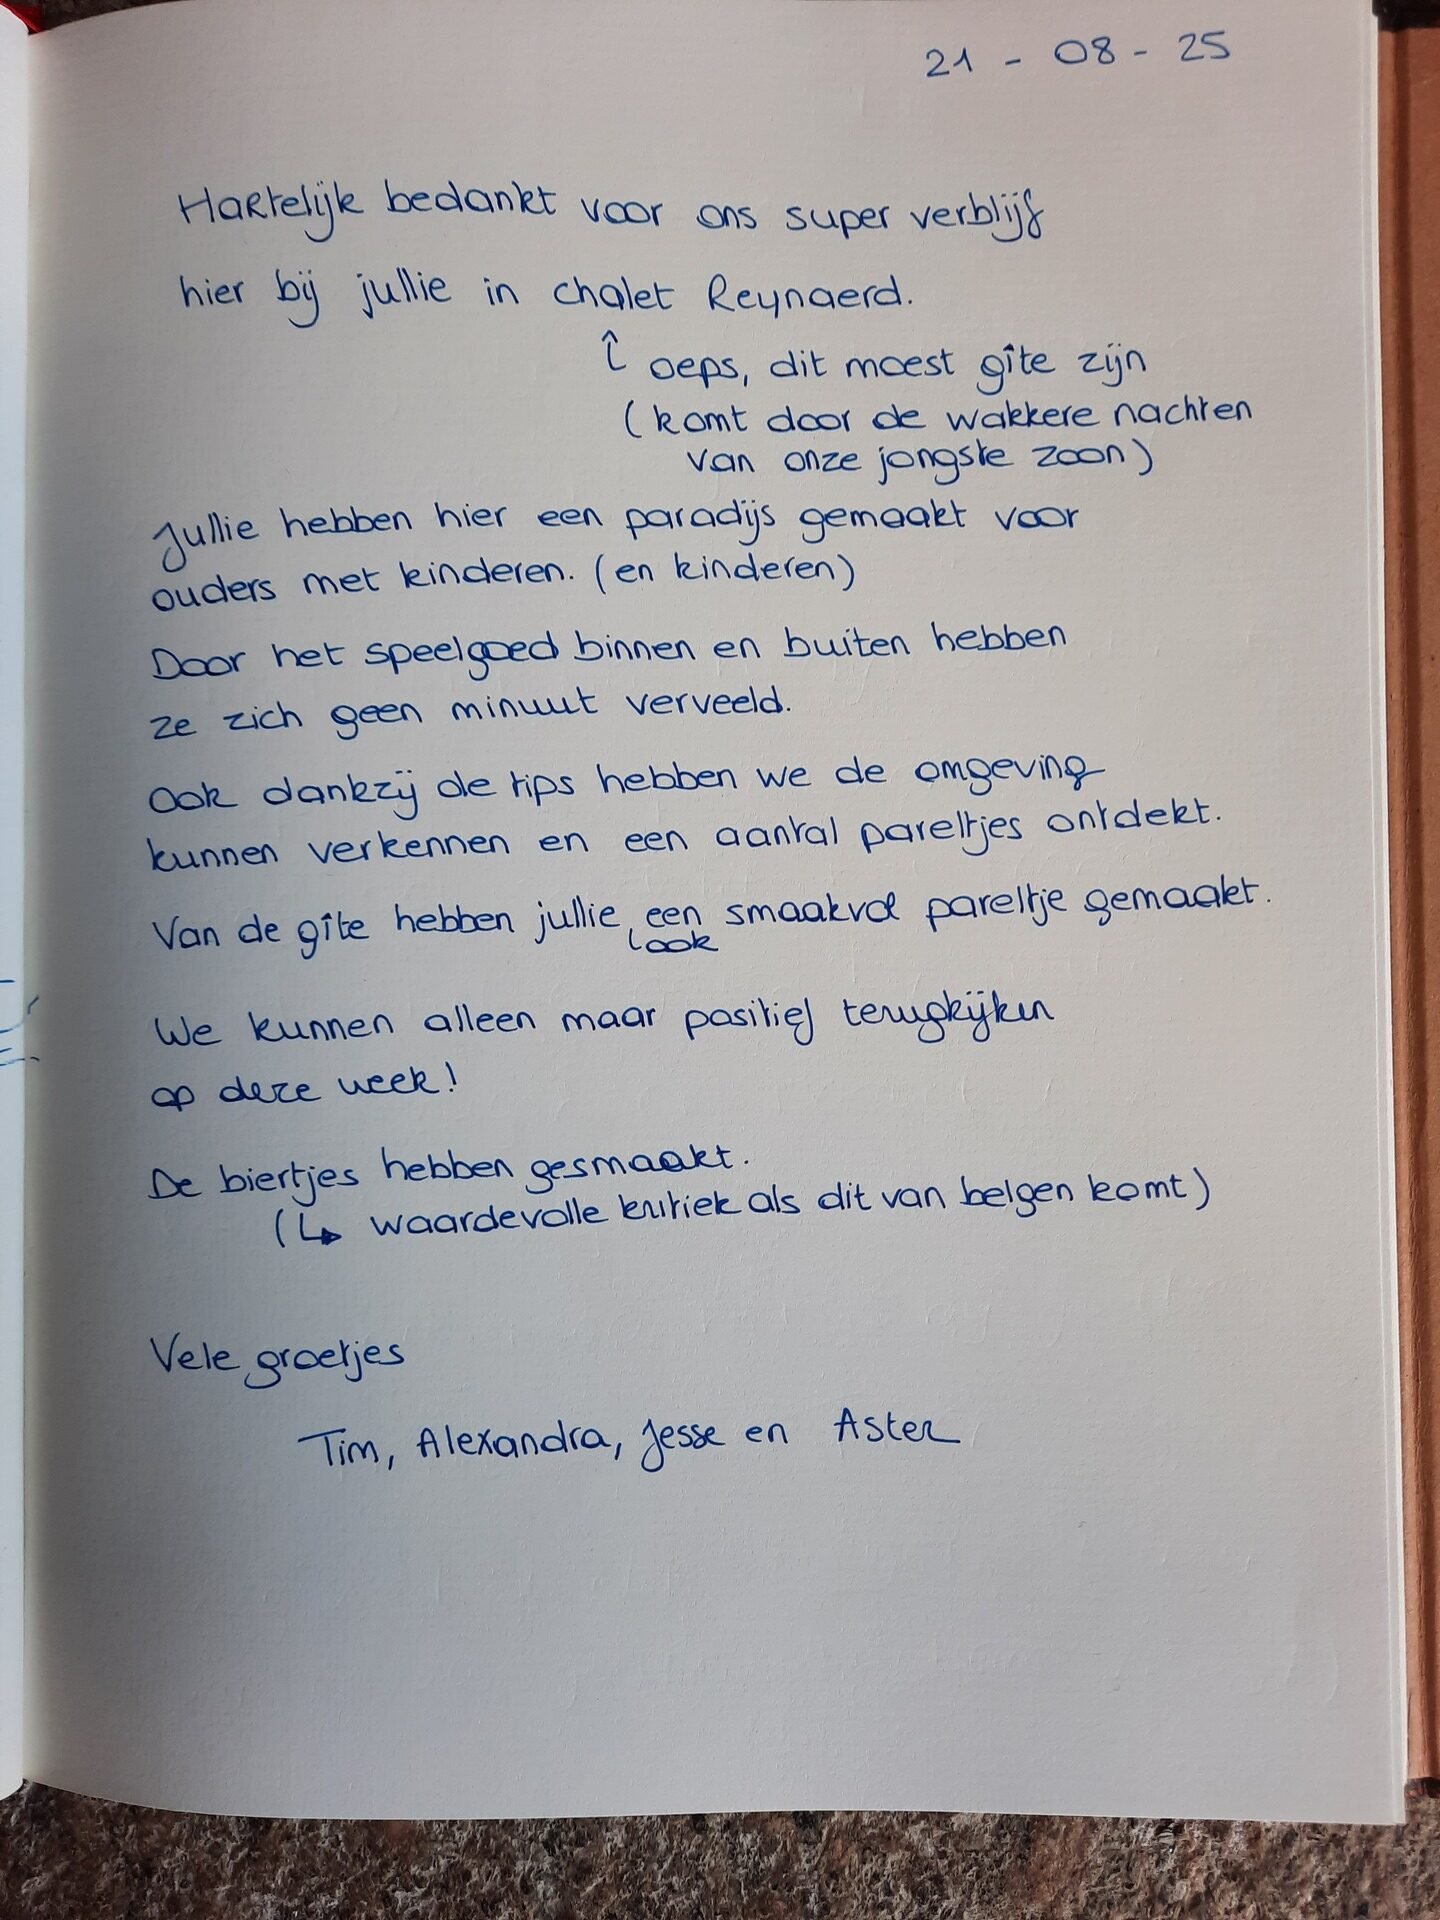 21 - 08 - 25
Hartelijk bedankt voor ons super verblijf
hier bij jullie in chalet Reynaerd.
oeps, dit moest gîte zijn
(komt door de wakkere nachten
van onze jongste zoon)
Jullie hebben hier een paradijs gemaakt voor
ouders met kinderen. (en kinderen)
Door het speelgoed binnen en buiten hebben
ze zich geen minuut verveeld.
Ook dankzij de tips hebben we de omgeving
kunnen verkennen en een aantal pareltjes ontdekt.
Van de gîte hebben jullie een smaakvol pareltje gemaakt.
ook
We kunnen alleen maar positief terugkijken
op deze week!
De biertjes hebben gesmaakt.
(↳ waardevolle kritiek als dit van belgen komt)
Vele groetjes
Tim, Alexandra, Jesse en Aster